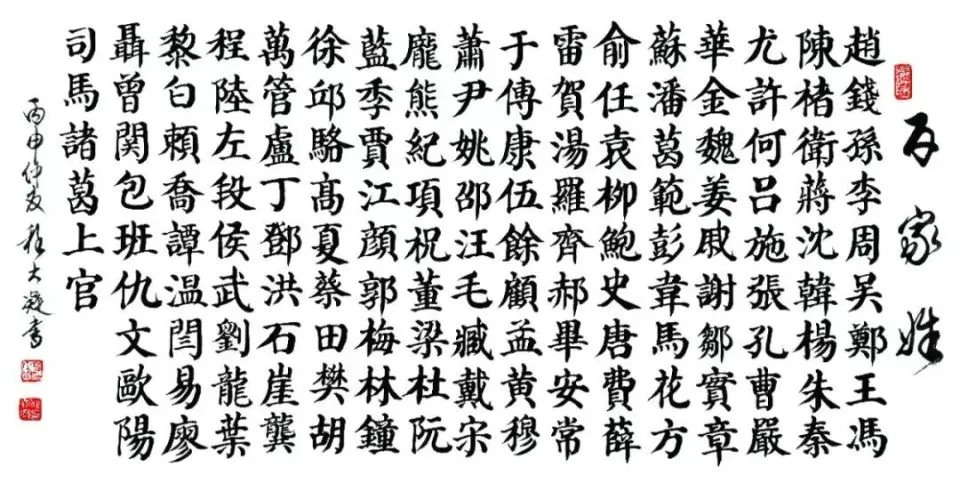 百家姓
趙錢孫李周吳鄭王馮
陳楮衛蔣沈韓楊朱秦
尤許何呂施張孔曹嚴
華金魏姜戚謝鄒實章
蘇潘葛範彭韋馬花方
俞任袁柳鮑史唐費薛
雷賀湯羅齊郝畢安常
于傅康伍餘顧孟黃穆
蕭尹姚邵汪毛臧戴宋
龐熊紀項祝董梁杜阮
藍季賈江顏郭梅林鐘
徐邱駱髙夏蔡田樊胡
萬管盧丁鄧洪石崖龔
程陸左段侯武劉龍葉
黎白賴喬譚温閆易廖
聶曾関包班仇文歐陽
司馬諸葛上官
丙申仲夏 大 書